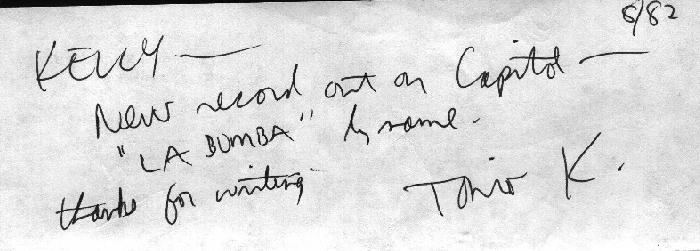 6/82
KELLY —
New record out on Capitol —
"LA BOMBA" by name.
thanks for writing
Tonio K.